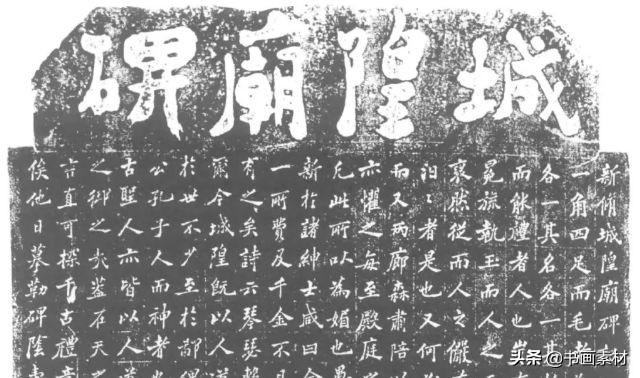 城隍廟碑
新脩城隍廟碑記
一角四足而毛者
各一其名各一其
而能禮者人也豈
冕旒執玉而人之
裒然從而人之儼
汩〻者是也又何
而又兩廊森肅陪以
亦懼之每至殿庭
凡此所以為媚也愚
新於諸紳士咸曰
一所費及千金不
有之矣詩云琴瑟
爾今城隍既以人道
於世不少至於
公孔子人而神者
古聖人亦皆以人道
之鄉之求蓋在天之
言直可探千古禮意
侯他日摹勒碑陰
头条 @书画素材